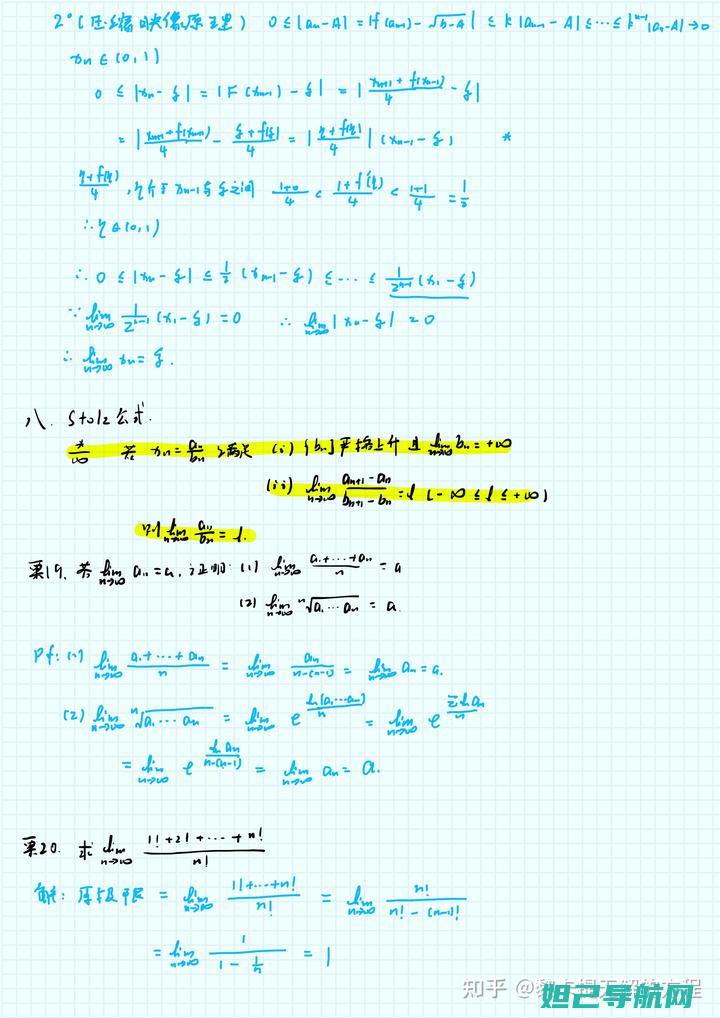 2° (压缩映像原理) 0 ≤ |aₙ-A| = |f(aₙ₋₁) - √b-A| ≤ k|aₙ₋₁-A| ≤ ⋯ ≤ kⁿ⁻¹|a₁-A| → 0
xₙ ∈ (0, 1)
0 ≤ |xₙ - ξ| = |F(xₙ₋₁) - ξ| = |(xₙ₋₁ + f(xₙ₋₁))/4 - ξ|
= |(xₙ₋₁ + f(xₙ₋₁))/4 - (ξ + f(ξ))/4| = |(η + f(η))/4| (xₙ₋₁ - ξ) *
(η + f(η))/4, η介于xₙ₋₁与ξ之间 (1+0)/4 < (1+f'(η))/4 < (1+1)/4 = 1/2
∴ η ∈ (0, 1)
∴ 0 ≤ |xₙ - ξ| ≤ 1/2 (xₙ₋₁ - ξ) ≤ ⋯ ≤ 1/2ⁿ⁻¹ (x₁ - ξ)
∵ lim n→∞ 1/2ⁿ⁻¹ (x₁ - ξ) = 0 ∴ lim n→∞ |xₙ - ξ| = 0
∴ lim n→∞ xₙ = ξ.
八. Stolz公式.
*/∞ 若 xₙ = aₙ/bₙ 满足 (i) {bₙ}严格上升且 lim n→∞ bₙ = +∞
(ii) lim n→∞ (aₙ₊₁ - aₙ)/(bₙ₊₁ - bₙ) = l (-∞ ≤ l ≤ +∞)
则 lim n→∞ aₙ/bₙ = l.
要19. 若 lim n→∞ aₙ = a, 证明: (1) lim n→∞ (a₁+⋯+aₙ)/n = a
(2) lim n→∞ ⁿ√a₁⋯aₙ = a.
Pf: (1) lim n→∞ (a₁+⋯+aₙ)/n = lim n→∞ aₙ/(n-(n-1)) = lim n→∞ aₙ = a.
(2) lim n→∞ ⁿ√a₁⋯aₙ = lim n→∞ e^(ln(a₁⋯aₙ)/n) = lim n→∞ e^(Σln aₙ/n)
= lim n→∞ e^(ln aₙ/(n-(n-1))) = lim n→∞ aₙ = a.
要20. 求 lim n→∞ (1!+2!+⋯+n!)/n!
解: 原极限 = lim n→∞ (1!+⋯+n!)/n! = lim n→∞ n!/(n!-(n-1)!)
= lim n→∞ 1/(1 - 1/n) = 1
知乎
妲己导航网